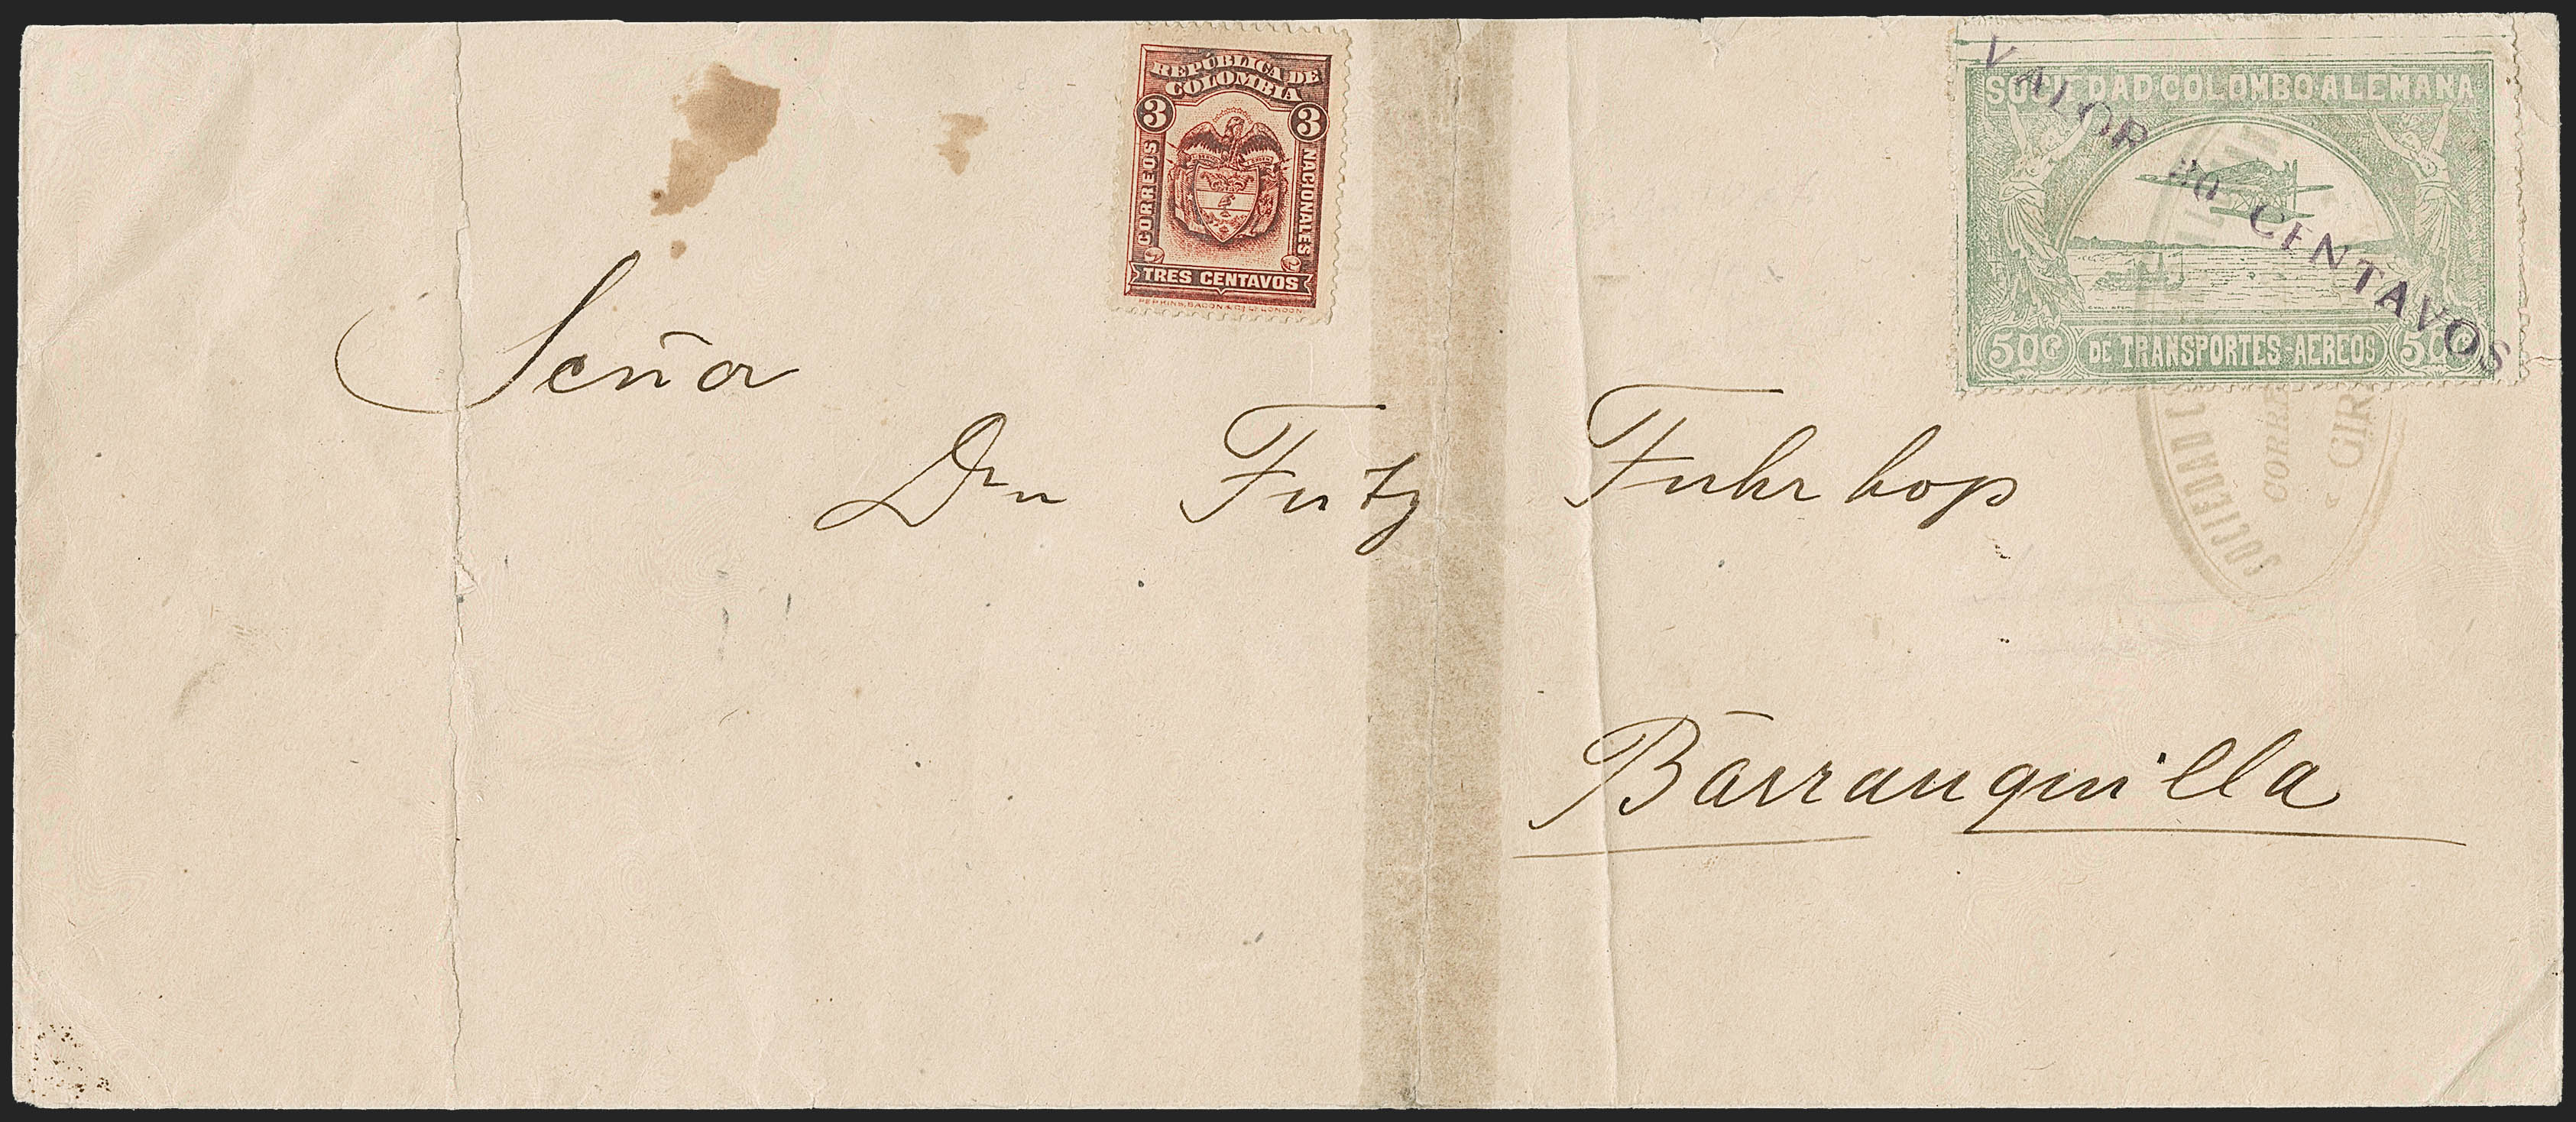 REPÚBLICA DE
COLOMBIA
3 3
CORREOS
NACIONALES
TRES CENTAVOS
PERKINS, BACON & Co LD LONDON.
SOCIEDAD COLOMBO ALEMANA
VALOR 30 CENTAVOS
50c DE TRANSPORTES AEREOS 50c
SOCIEDAD
CORRE
GIR
Señor
Dn Fritz Fuhrhop
Barranquilla